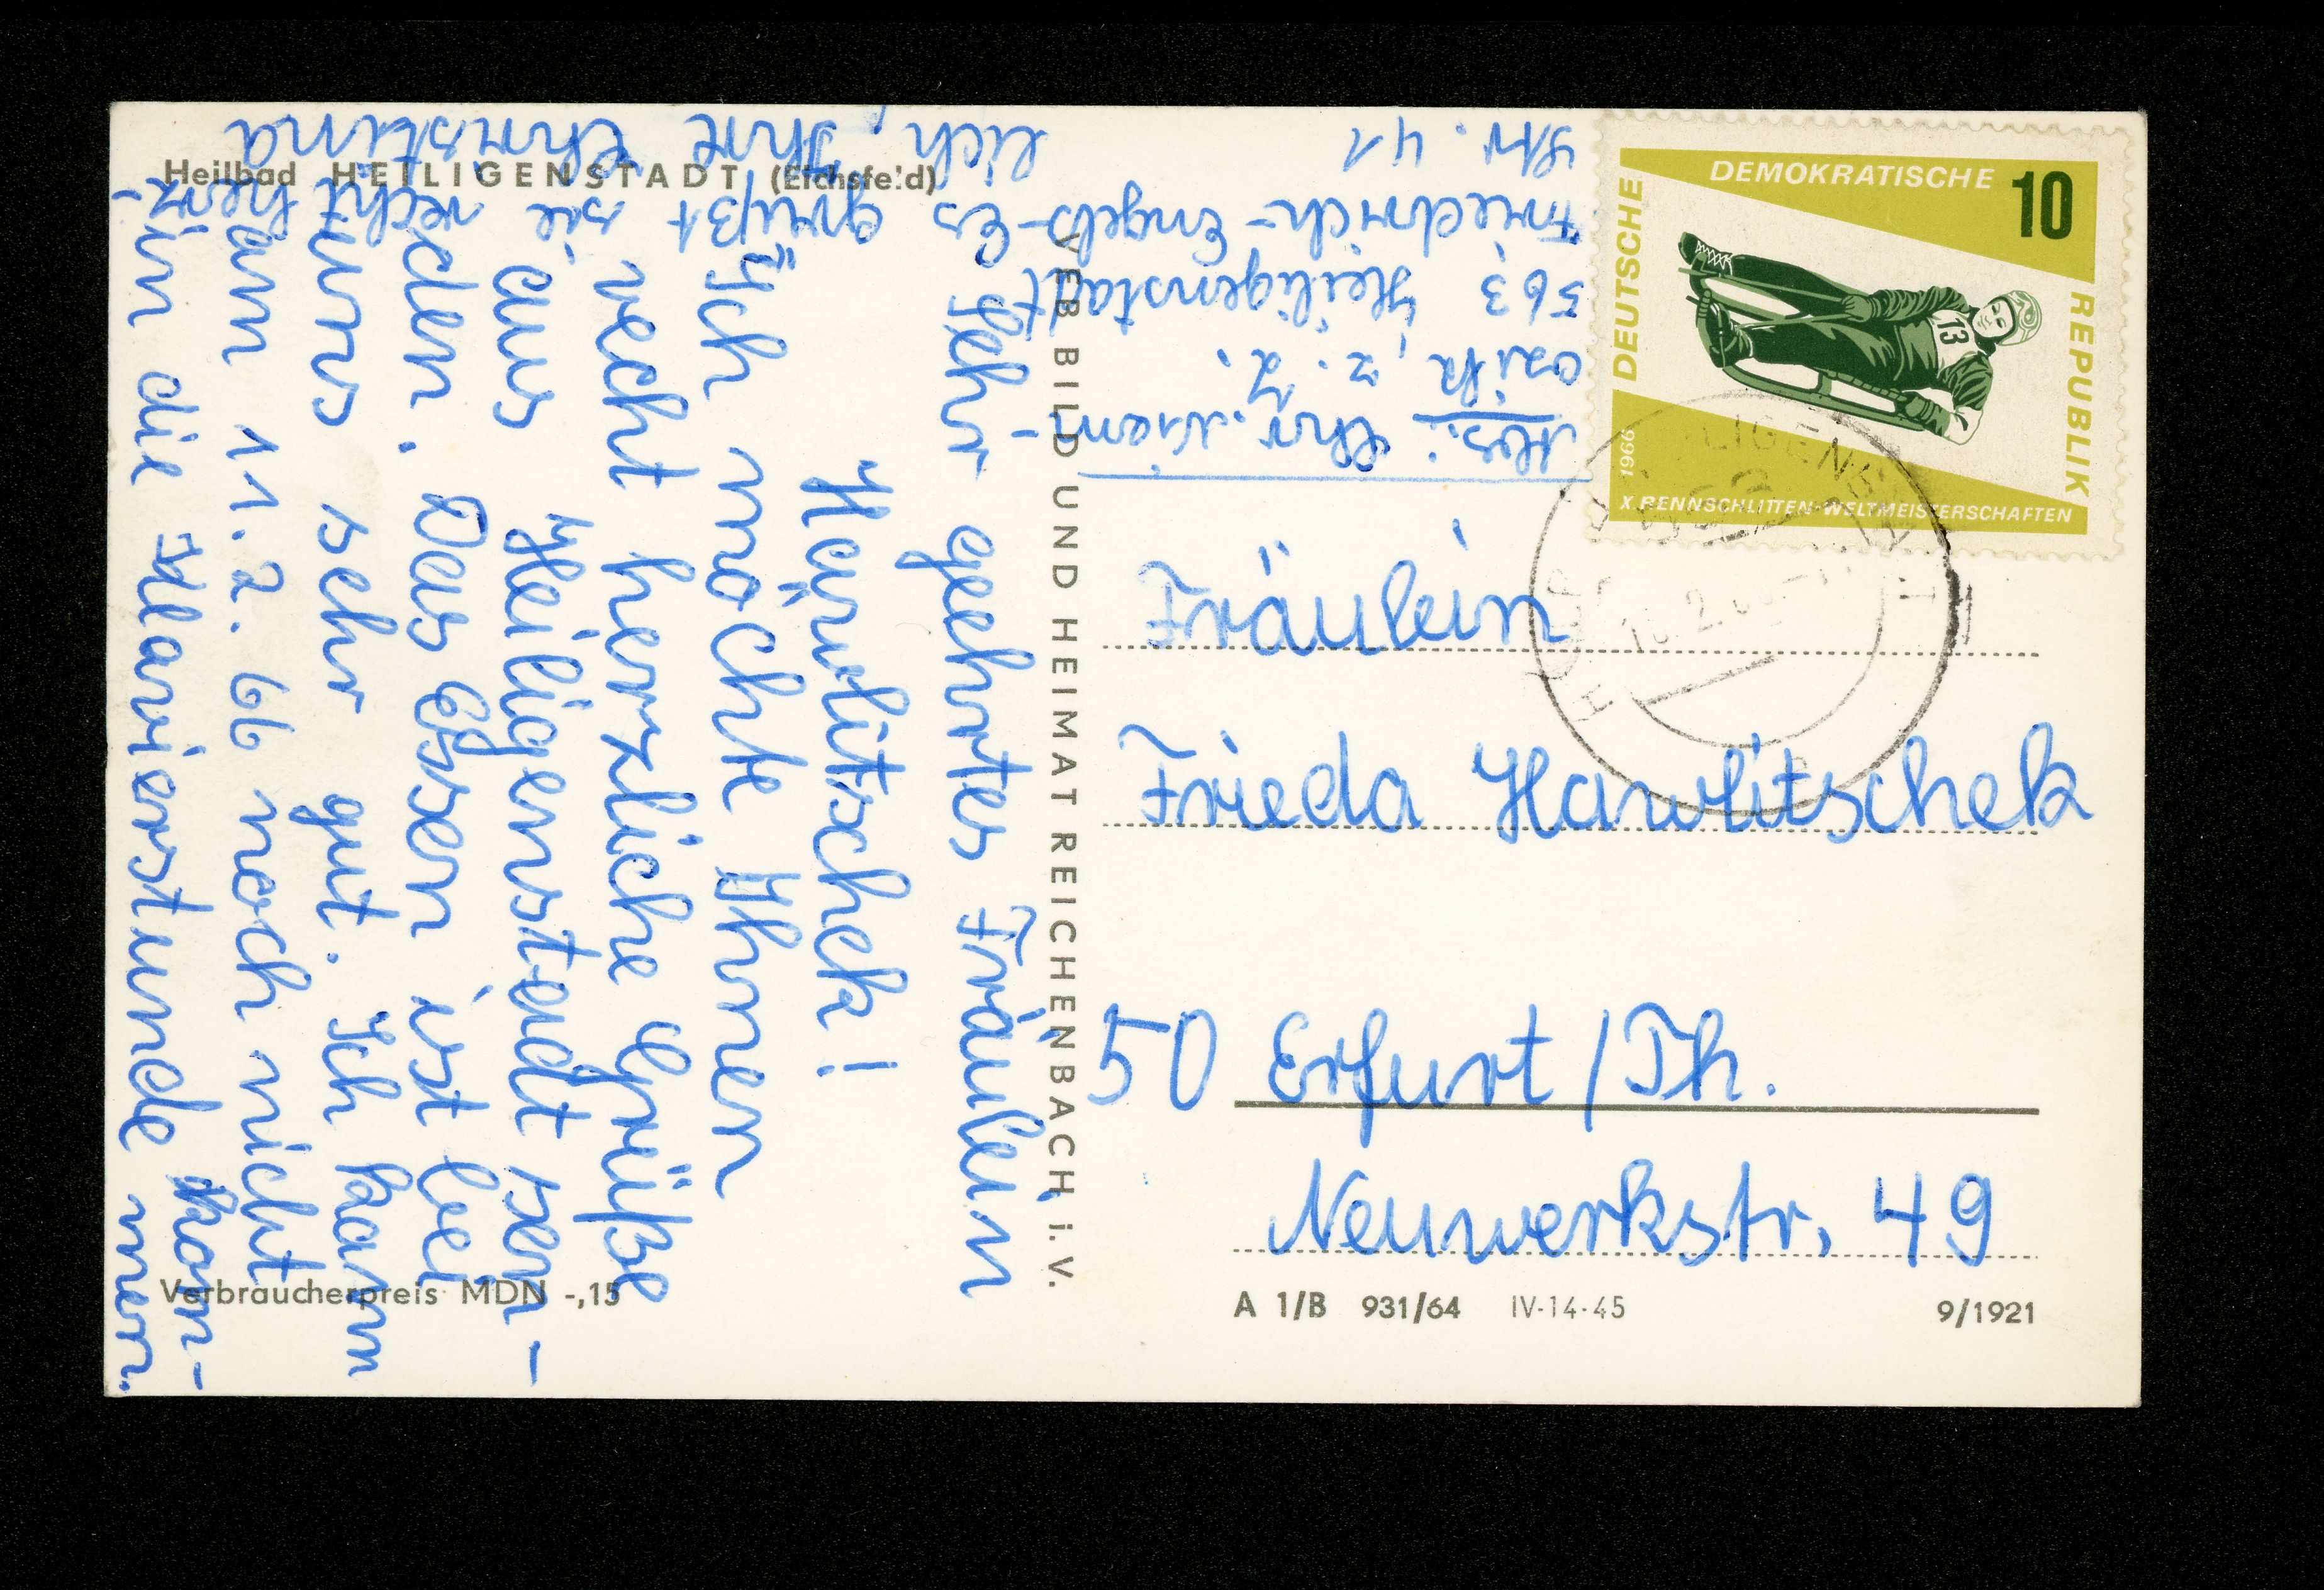 Heilbad HEILIGENSTADT (Eichsfeld)
Sehr geehrtes Fräulein
Hawlitschek!
Ich möchte Ihnen
recht herzliche Grüße
aus Heiligenstadt sen-
den. Das Essen ist bei
uns sehr gut. Ich kann
am 11.2.66 noch nicht
in die Klavierstunde kom-
men.
Es grüßt sie recht herz-
lich, Ihre Christina
VEB BILD UND HEIMAT REICHENBACH i. V.
Abs.: Chr. Niem-
czik, z. Z.
563 Heiligenstadt
Friedrich-Engels-
Str. 41
DEUTSCHE
DEMOKRATISCHE
REPUBLIK
10
13
1966
X RENNSCHLITTEN-WELTMEISTERSCHAFTEN
Fräulein
Frieda Hawlitschek
50 Erfurt/Th.
Neuwerkstr. 49
Verbraucherpreis MDN -,15
A 1/B 931/64 IV-14-45 9/1921